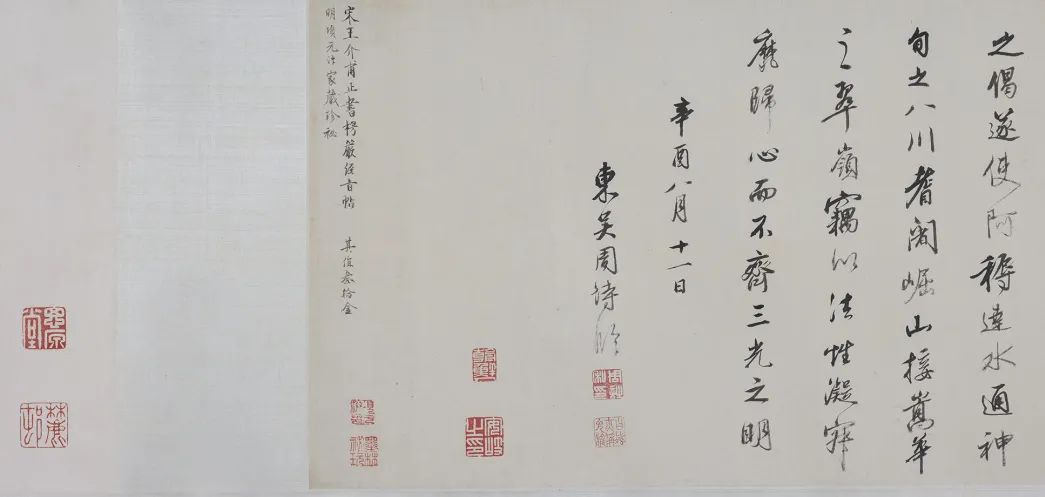 之偈遂使阿耨達水通神
甸之八川耆闍崛山接嵩華
之翠嶺竊以法性凝寂
靡歸心而不齊三光之明
辛酉八月十一日
東吳周詩
安岐之印
宋王介甫正書楞嚴經旨帖 其值叁拾金
明項元汴家藏珍秘
思原堂